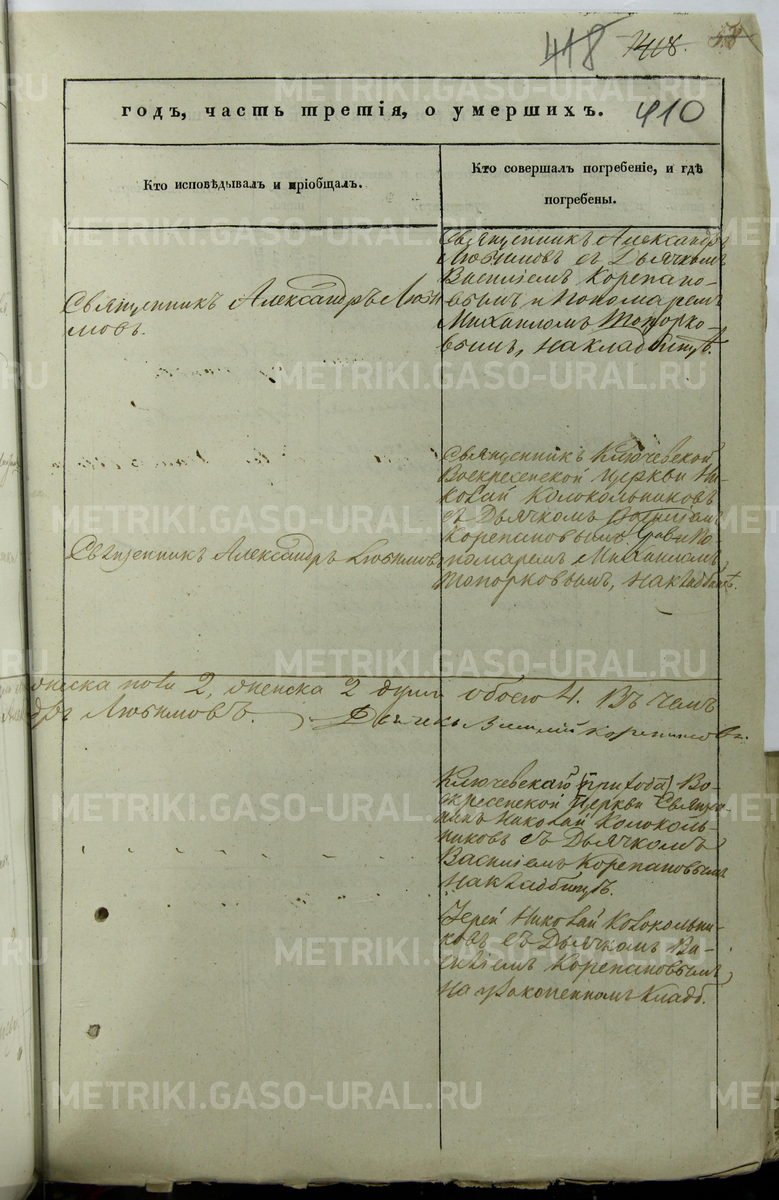 418 1418.
годъ, часть третія, о умершихъ. 410
Кто исповѣдывалъ и пріобщалъ.
Кто совершалъ погребеніе, и гдѣ
погребены.
Священникъ Александръ Люби
мовъ.
Священникъ Александръ
Любимовъ съ Дьячкомъ
Василіемъ Корепано-
вымъ и Пономаремъ
Михаиломъ Топорко-
вымъ, на кладбищѣ.
Священникъ Александръ Любимовъ
Священникъ Ключевской
Воскресенской Церкви Ни-
колай Колокольниковъ
съ Дьячкомъ Василіемъ
Корепановымъ, По-
номаремъ Михаиломъ
Топорковымъ, на кладбищѣ.
пола 2, женска 2 души обоего 4. Въ чемъ
дръ Любимовъ. Дьячекъ Василій Корепановъ.
Ключевскаго (прихода) Во-
скресенской Церкви Священ-
никъ Николай Колоколь-
никовъ съ Дьячкомъ
Василіемъ Корепановымъ
на кладбищѣ.
Іерей Николай Колокольни-
ковъ съ Дьячкомъ Ва-
силіемъ Корепановымъ,
на кладб.
METRIKI.GASO-URAL.RU